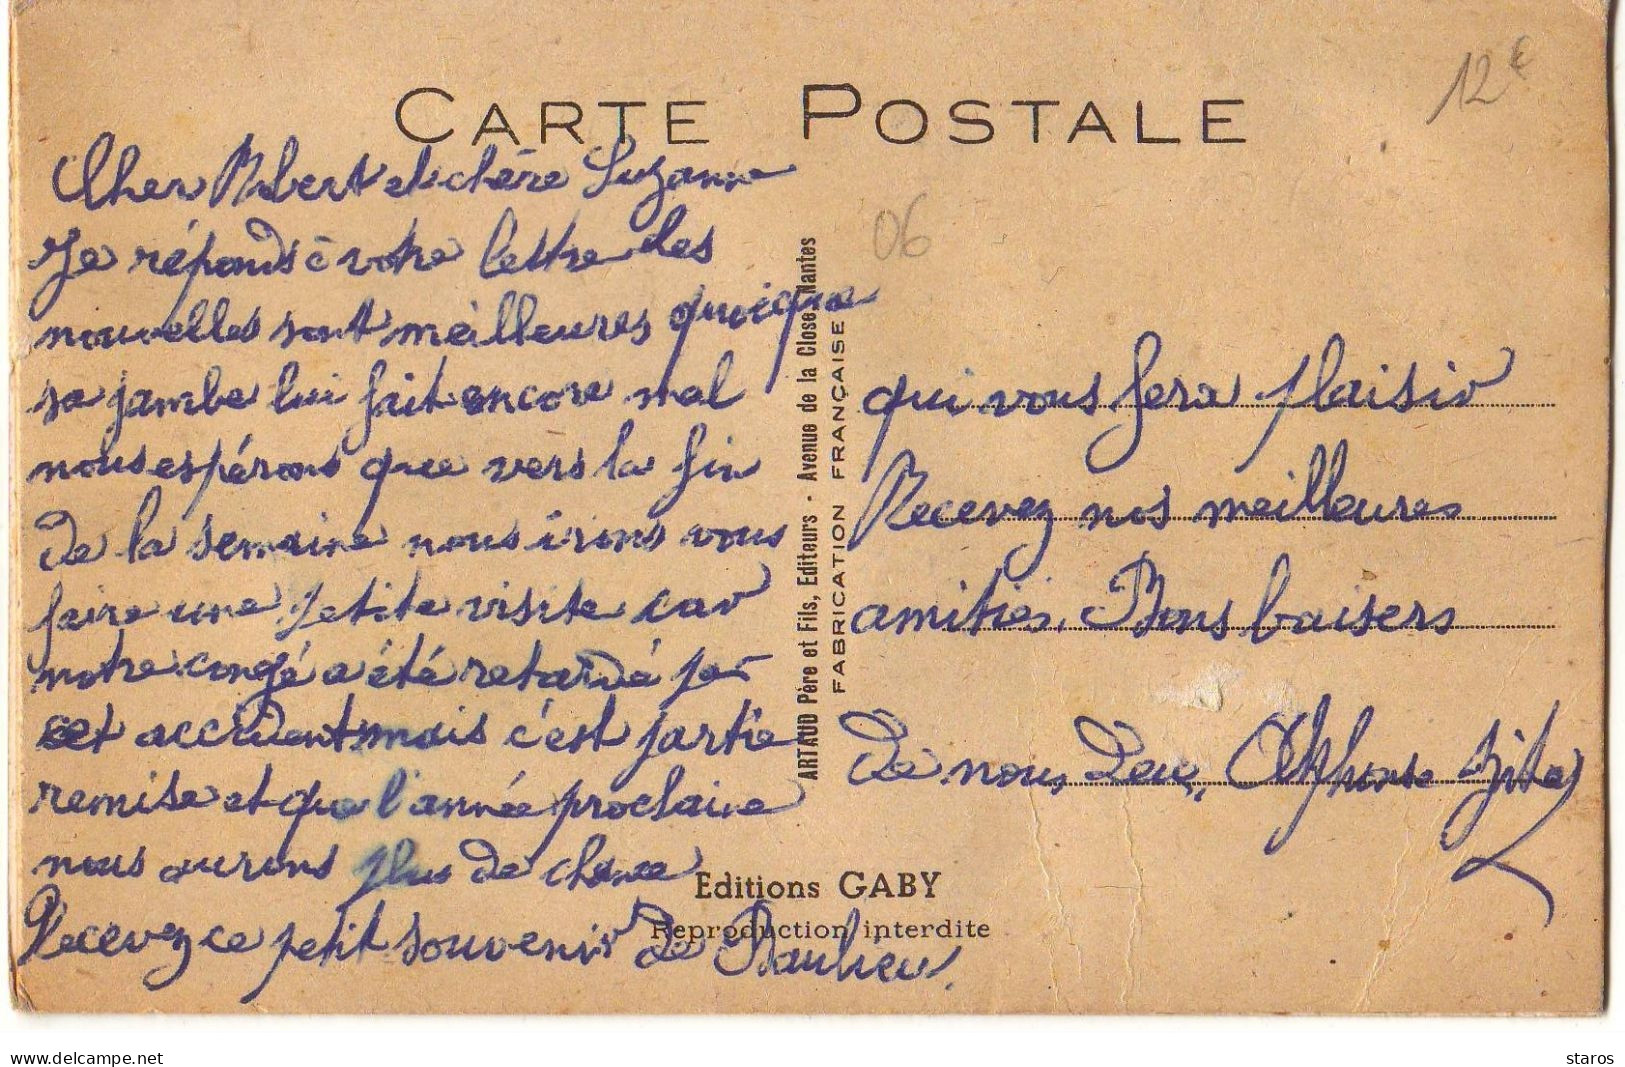 CARTE POSTALE
12€
06
Cher Robert et chère Suzanne
Je réponds à votre lettre les
nouvelles sont meilleures quoique
sa jambe lui fait encore mal
nous espérons que vers la fin
de la semaine nous irons vous
faire une petite visite car
notre congé a été retardé par
cet accident mais c'est partie
remise et que l'année prochaine
nous aurons plus de chance
Recevez ce petit souvenir de Beaulieu.
ARTAUD Père et Fils, Editeurs - Avenue de la Close, Nantes
FABRICATION FRANÇAISE
qui vous fera plaisir
Recevez nos meilleures
amitiés. Bons baisers
de nous deux, Alphonse Zita
Editions GABY
Reproduction interdite
staros